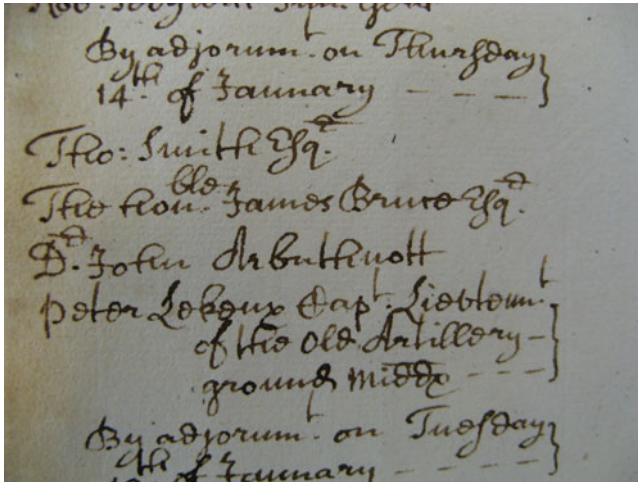 By adjornmt. on Thursday
14th. of January - - -
Tho: Smith Esqr.
The honble. James Bruce Esqr.
Dr. John Arbuthnott
Peter Lekeux Capt. Lievtennt.
of the Old Artillery -
ground Middx - - -
By adjornmt. on Tuesday
th of January - - - -